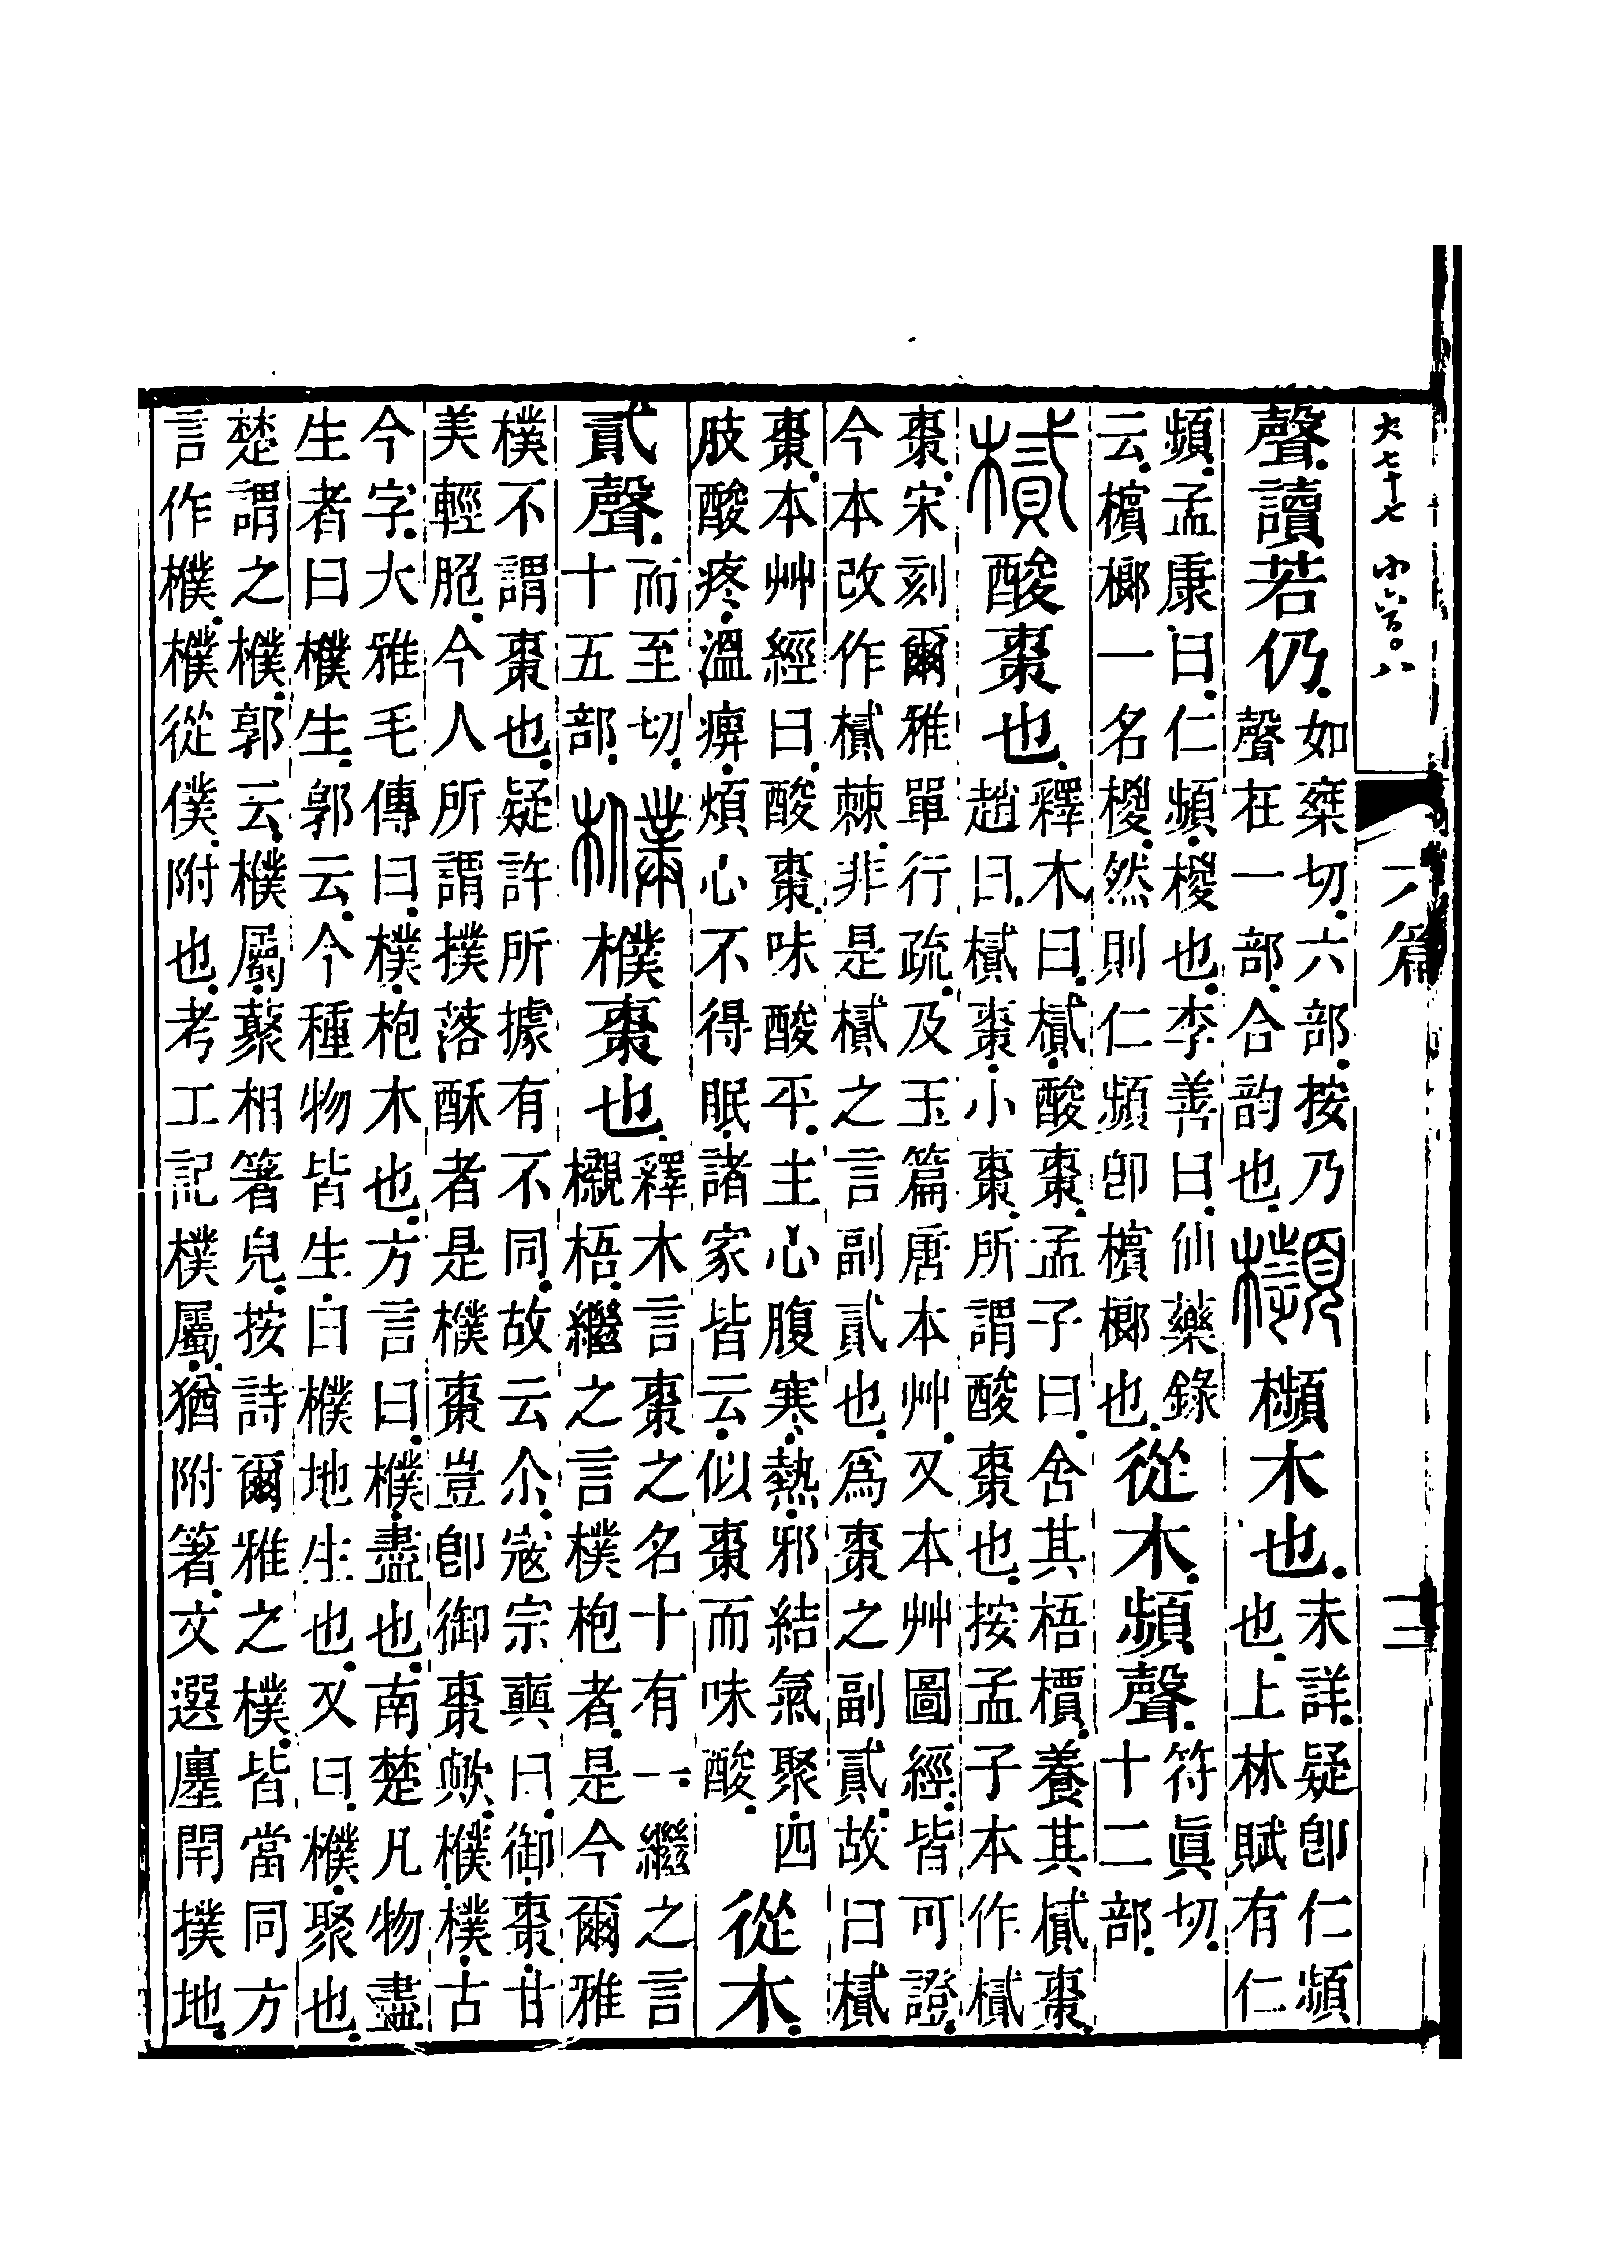 大七十七 小六百〇八
六篇
二
聲.讀若仍.如椉切.六部.按乃
聲在一部.合韵也.櫇櫇木也.未詳.疑卽仁頻
也.上林賦有仁
頻.孟康曰.仁頻.椶也.李善曰.仙藥錄
云.檳榔一名椶.然則仁頻卽檳榔也.從木.頻聲.符眞切.
十二部.
樲酸棗也.釋木曰.樲.酸棗.孟子曰.舍其梧檟.養其樲棗.
趙曰.樲棗.小棗.所謂酸棗也.按孟子本作樲
棗.宋刻爾雅單行疏.及玉篇唐本艸.又本艸圖經.皆可證.
今本改作樲棘.非是.樲之言副貳也.爲棗之副貳.故曰樲
棗.本艸經曰.酸棗.味酸平.主心腹寒熱.邪結氣聚.四
肢酸疼.溫痹.煩心不得眠.諸家皆云.似棗而味酸.從木.
貳聲.而至切.
十五部.㯷㯷棗也.釋木言棗之名十有一.繼之言
櫬梧.繼之言樸枹者.是今爾雅
樸不謂棗也.疑許所據有不同.故云尒.寇宗奭曰.御棗甘
美輕脃.今人所謂撲落酥者是.㯷棗豈卽御棗歟.㯷.樸古
今字.大雅毛傳曰.樸.枹木也.方言曰.㯷.盡也.南楚凡物盡
生者曰㯷生.郭云.今種物皆生.曰㯷地生也.又曰.㯷.聚也.
楚謂之㯷.郭云.㯷屬.藂相箸皃.按詩爾雅之樸.皆當同方
言作㯷.㯷從僕.附也.考工記樸屬.猶附箸.文選廛閈撲地.